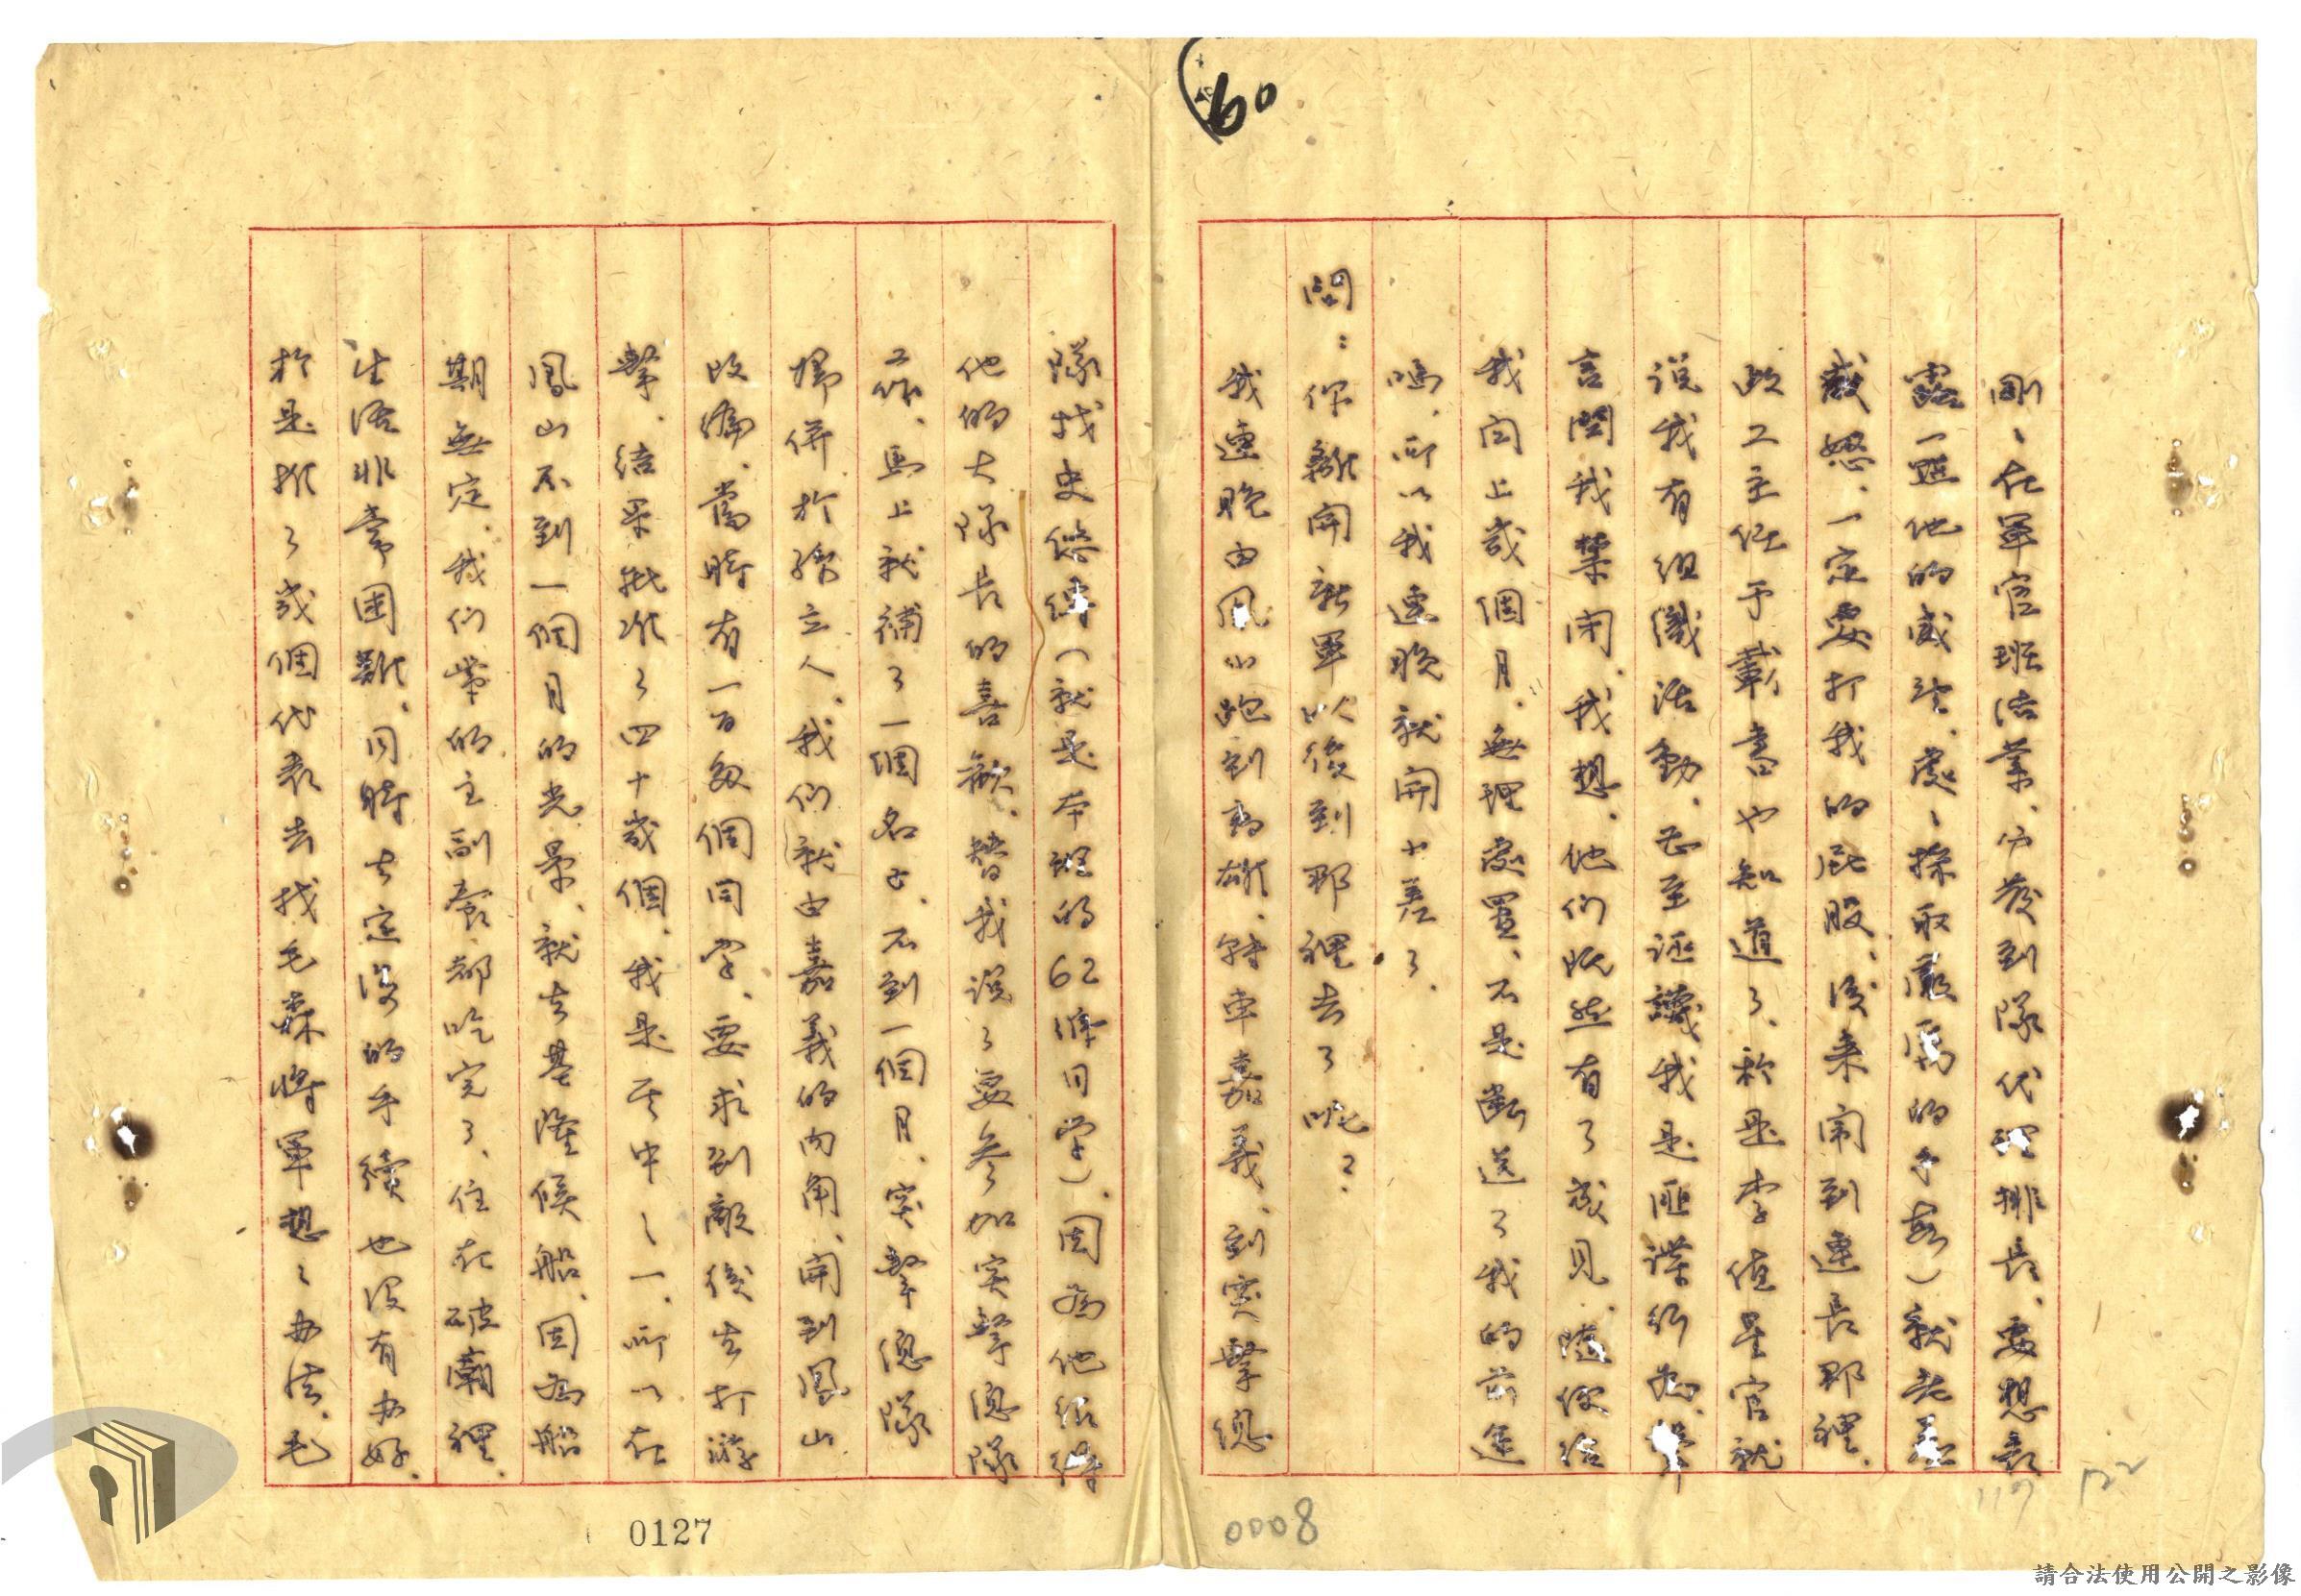 60
剛、在軍官班結業、分發到隊代理排長、要想表
露一點他的威武、處、採取嚴厲的手段）就老羞
成怒、一定要打我的屁股、後來鬧到連長那裡、
政工主任于蘄書也知道了、於是李值星官就
說我有組織活動、甚至誣譏我是匪諜行為、
言問我禁閉、我想、他們既然有了成見、隨便給
我閂上幾個月、無理處置、不是斷送了我的前途
嗎、所以我連晚就開小差了、
問：你離開新軍以後到那裡去了呢？
我連晚由鳳山跑到高雄、轉車嘉義、到突擊總
隊找史（就是本班的62條同學）、因為他很得
他的大隊長的喜歡、替我說了要參加突擊總隊
工作、馬上就補了一個名子、不到一個月、突擊總隊
歸併於孫立人、我們就由嘉義的內角、開到鳳山
改編、當時有一百多個同學、要求到敵後去打游
擊、結果批准了四十幾個、我是其中之一、所以在
鳳山不到一個月的光景、就去基隆候船、因為船
期無定、我們帶的主副食都吃完了、住在破廟裡、
生活非常困難、同時去定海的手續也沒有办好、
於是推了幾個代表去找毛森將軍想、办法、毛
0127
0008
117
122
請合法使用公開之影像